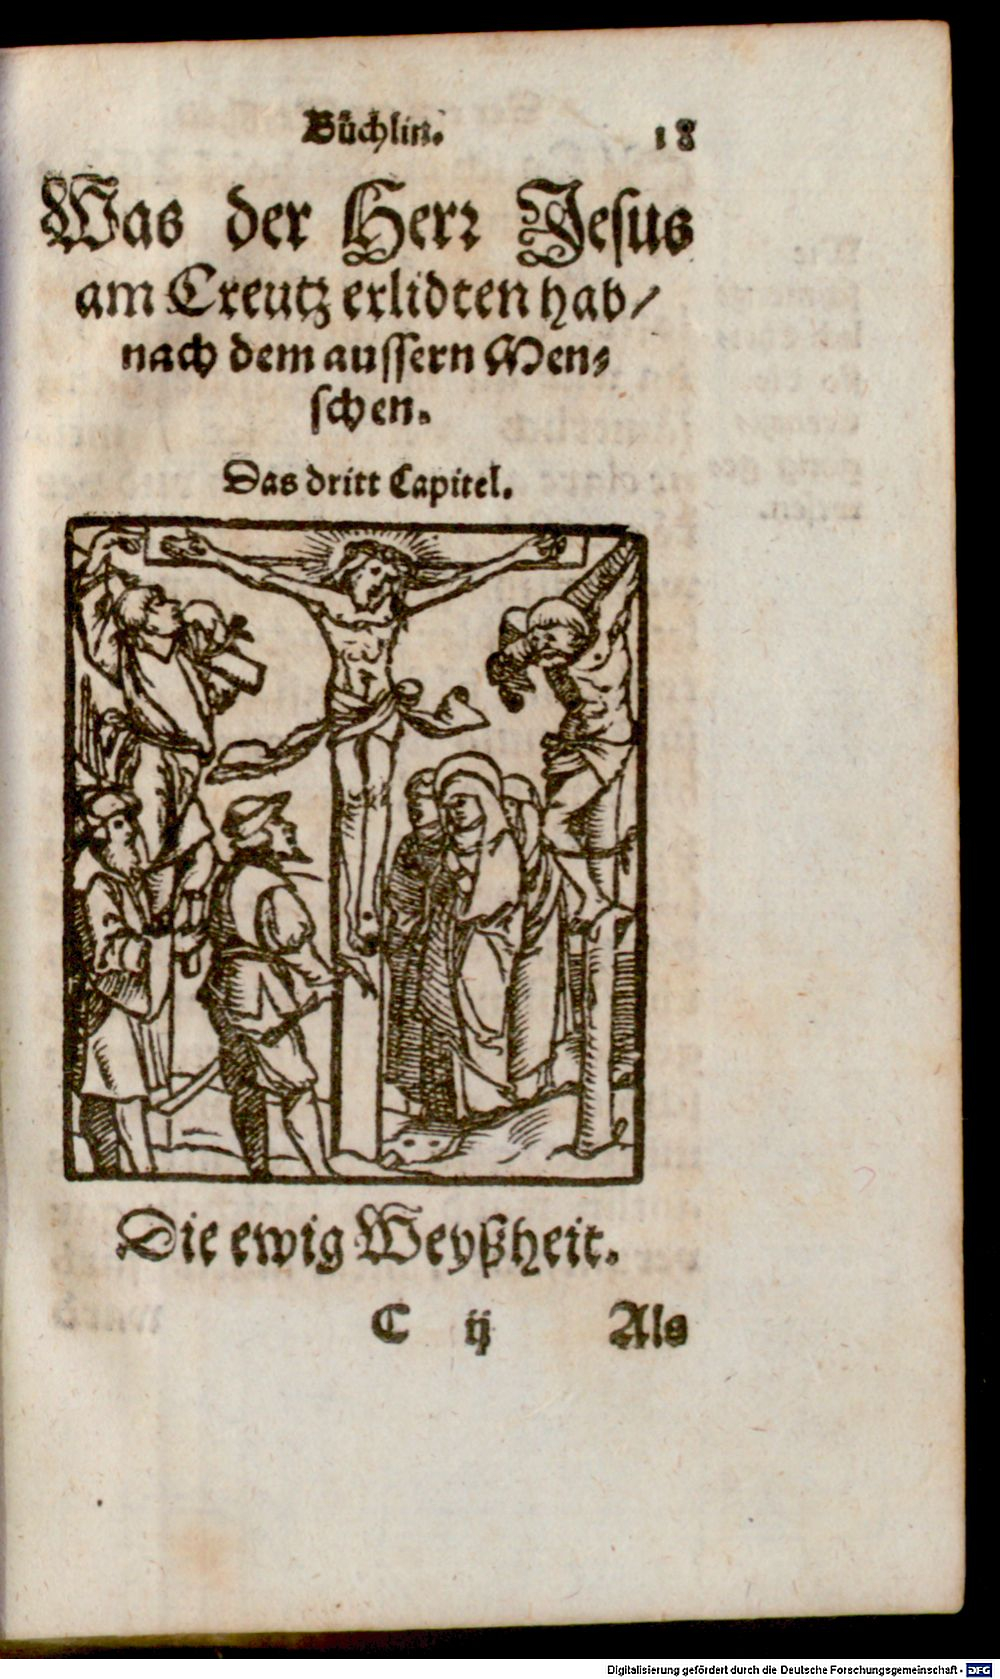 Büchlin. 18
Was der Herr Jesus
am Creutz erlidten hab/
nach dem aussern Men⸗
schen.
Das dritt Capitel.
Die ewig Weyßheit.
C ij Als
Digitalisierung gefördert durch die Deutsche Forschungsgemeinschaft - DFG